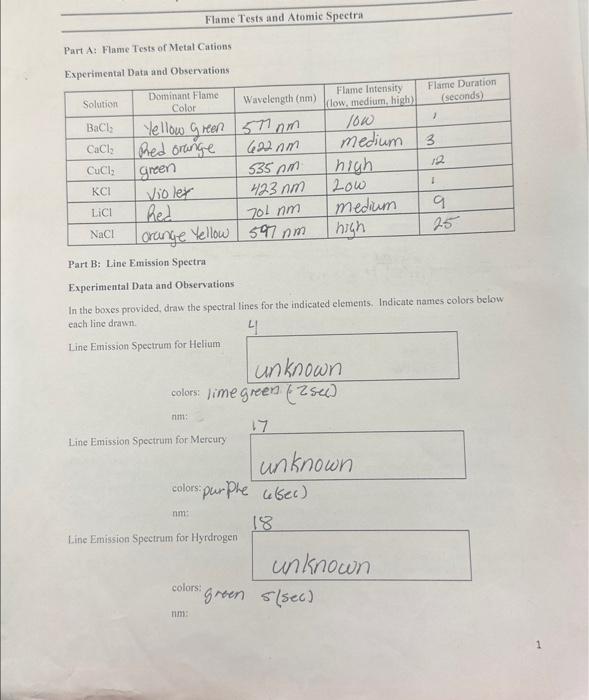 Flame Tests and Atomic Spectra
Part A: Flame Tests of Metal Cations
Experimental Data and Observations
Solution Dominant Flame Color Wavelength (nm) Flame Intensity (low, medium, high) Flame Duration (seconds)
BaCl₂ Yellow Green 577 nm low
CaCl₂ Red orange 622 nm medium 3
CuCl₂ green 535 nm high 12
KCl Violet 423 nm Low 1
LiCl Red 701 nm medium 9
NaCl orange Yellow 597 nm high 25
Part B: Line Emission Spectra
Experimental Data and Observations
In the boxes provided, draw the spectral lines for the indicated elements. Indicate names colors below
each line drawn.
4
Line Emission Spectrum for Helium
unknown
colors: lime green (2 sec)
nm:
17
Line Emission Spectrum for Mercury
unknown
colors: purple 6(sec)
nm:
18
Line Emission Spectrum for Hyrdrogen
unknown
colors: green 5(sec)
nm:
1